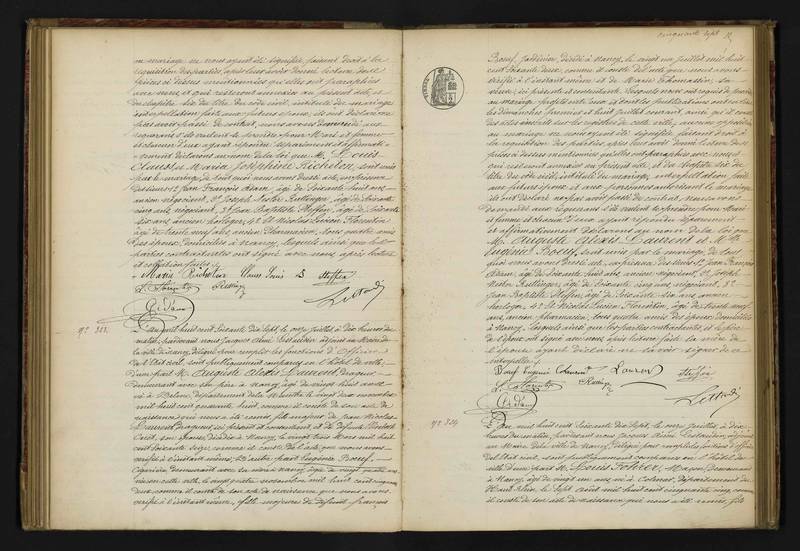 cinquante sept
en mariage ne nous ayant été signifié, faisant droit à la
réquisition des parties, après leur avoir donné lecture
pièces ci dessus mentionnées qu'elles ont paraphées
avec nous, et qui resteront annexées au présent acte, et
du chapitre six du titre du code civil, intitulé du mariage
interpellation faite aux futurs époux, ils ont déclaré
pas avoir passé de contrat, nous avons demandé aux
requérants s'ils veulent se prendre pour Mari et femme
et chacun d'eux ayant répondu séparément et affirmativement
déclarons au nom de la loi que M. Louis
Clauss et Maria Joséphine Richelin, sont unis
par le mariage, de tout quoi nous avons dressé acte, en présence
des sieurs 1° Jean François Adam, âgé de soixante huit ans
ancien négociant, 2° Joseph Nestor Ruttinger, âgé de soixante
cinq ans, négociant, 3° Jean Baptiste Steffen, âgé de soixante
dix ans, ancien horloger, et 4° Nicolas Lucien Florentin,
âgé de trente neuf ans, ancien Pharmacien, tous quatre amis
des époux, domiciliés à Nancy, lesquels ainsi que les
parties contractantes ont signé avec nous, après lecture
et collation faites.
Maria Clauss Louis Steffen
Adam
N° 353.
L'an mil huit cent soixante dix sept, le onze juillet, à dix heures du
matin, pardevant nous Jacques Aimé adjoint au Maire de
la ville de Nancy, délégué pour remplir les fonctions d'Officier
de l'Etat civil, sont publiquement comparus en l'hôtel de ville
d'une part M. Auguste Alexis Laurent,
demeurant avec son père à Nancy, âgé de vingt huit ans
né à département de la Meurthe le vingt deux novembre
mil huit cent quarante huit, comme il conste de son acte de
naissance qui nous a été remis, fils majeur de Jean Nicolas
Laurent ici présent et consentant, et de défunte
son épouse, décédée à Nancy, le vingt trois mil huit
cent soixante seize comme il conste de l'acte que nous avons
vérifié à l'instant même, D'autre part Eugénie Boeuf
demeurant avec sa mère à Nancy, âgée de vingt quatre ans
née en cette ville, le vingt quatre novembre mil huit cent cinquante
deux comme il conste de son acte de naissance que nous avons
vérifié à l'instant même, fille majeure de défunt François
Boeuf, décédé à Nancy, le vingt un juillet mil huit
cent soixante deux, comme il conste de l'acte que nous avons
vérifié à l'instant même et de Marie sa
veuve, ici présente et consentante. Lesquels nous ont requis de procéder
au mariage projeté entre eux et dont les publications ont été faites
les dimanches premier et huit juillet courant, ainsi qu'il conste
des actes inscrits sur les registres de cette ville, aucune opposition
au mariage ne nous ayant été signifiée faisant droit à
la réquisition des parties, après leur avoir donné lecture des
pièces ci dessus mentionnées qu'elles ont paraphées avec nous et
qui resteront annexées au présent acte, et du chapitre six du
titre du code civil, intitulé du mariage, interpellation faite
aux futurs époux et aux personnes autorisant le mariage
ils ont déclaré ne pas avoir passé de contrat. Nous avons
demandé aux requérants s'ils veulent se prendre pour Mari
et femme et chacun d'eux ayant répondu séparément
et affirmativement Déclarons au nom de la loi que
M. Auguste Alexis Laurent et Mlle
Eugénie Boeuf, sont unis par le mariage, de tout
quoi nous avons dressé acte, en présence des sieurs 1° Jean François
Adam, âgé de soixante huit ans, ancien négociant, 2° Joseph
Nestor Ruttinger, âgé de soixante cinq ans, négociant, 3°
Jean Baptiste Steffen, âgé de soixante dix ans, ancien
horloger, et 4° Nicolas Lucien Florentin, âgé de trente neuf
ans, ancien pharmacien, tous quatre amis des époux domiciliés
à Nancy, lesquels ainsi que les parties contractantes, et le père
de l'époux ont signé avec nous après lecture faite la mère de
l'épouse ayant déclaré ne savoir signer de ce
interpellée.
Boeuf Eugénie Laurent Steffen
Adam
N° 354
L'an mil huit cent soixante dix sept, le onze juillet, à dix
heures du matin, pardevant nous Jacques Aimé adjoint
au Maire de la ville de Nancy, délégué pour remplir les fonctions d'officier
de l'Etat civil, sont publiquement comparus en l'hôtel de
ville d'une part M. Louis Maçon, demeurant
à Nancy, âgé de vingt un ans, né à Colmar, département du
Haut Rhin, le sept août mil huit cent cinquante cinq, comme
il conste de son acte de naissance qui nous a été remis, fils